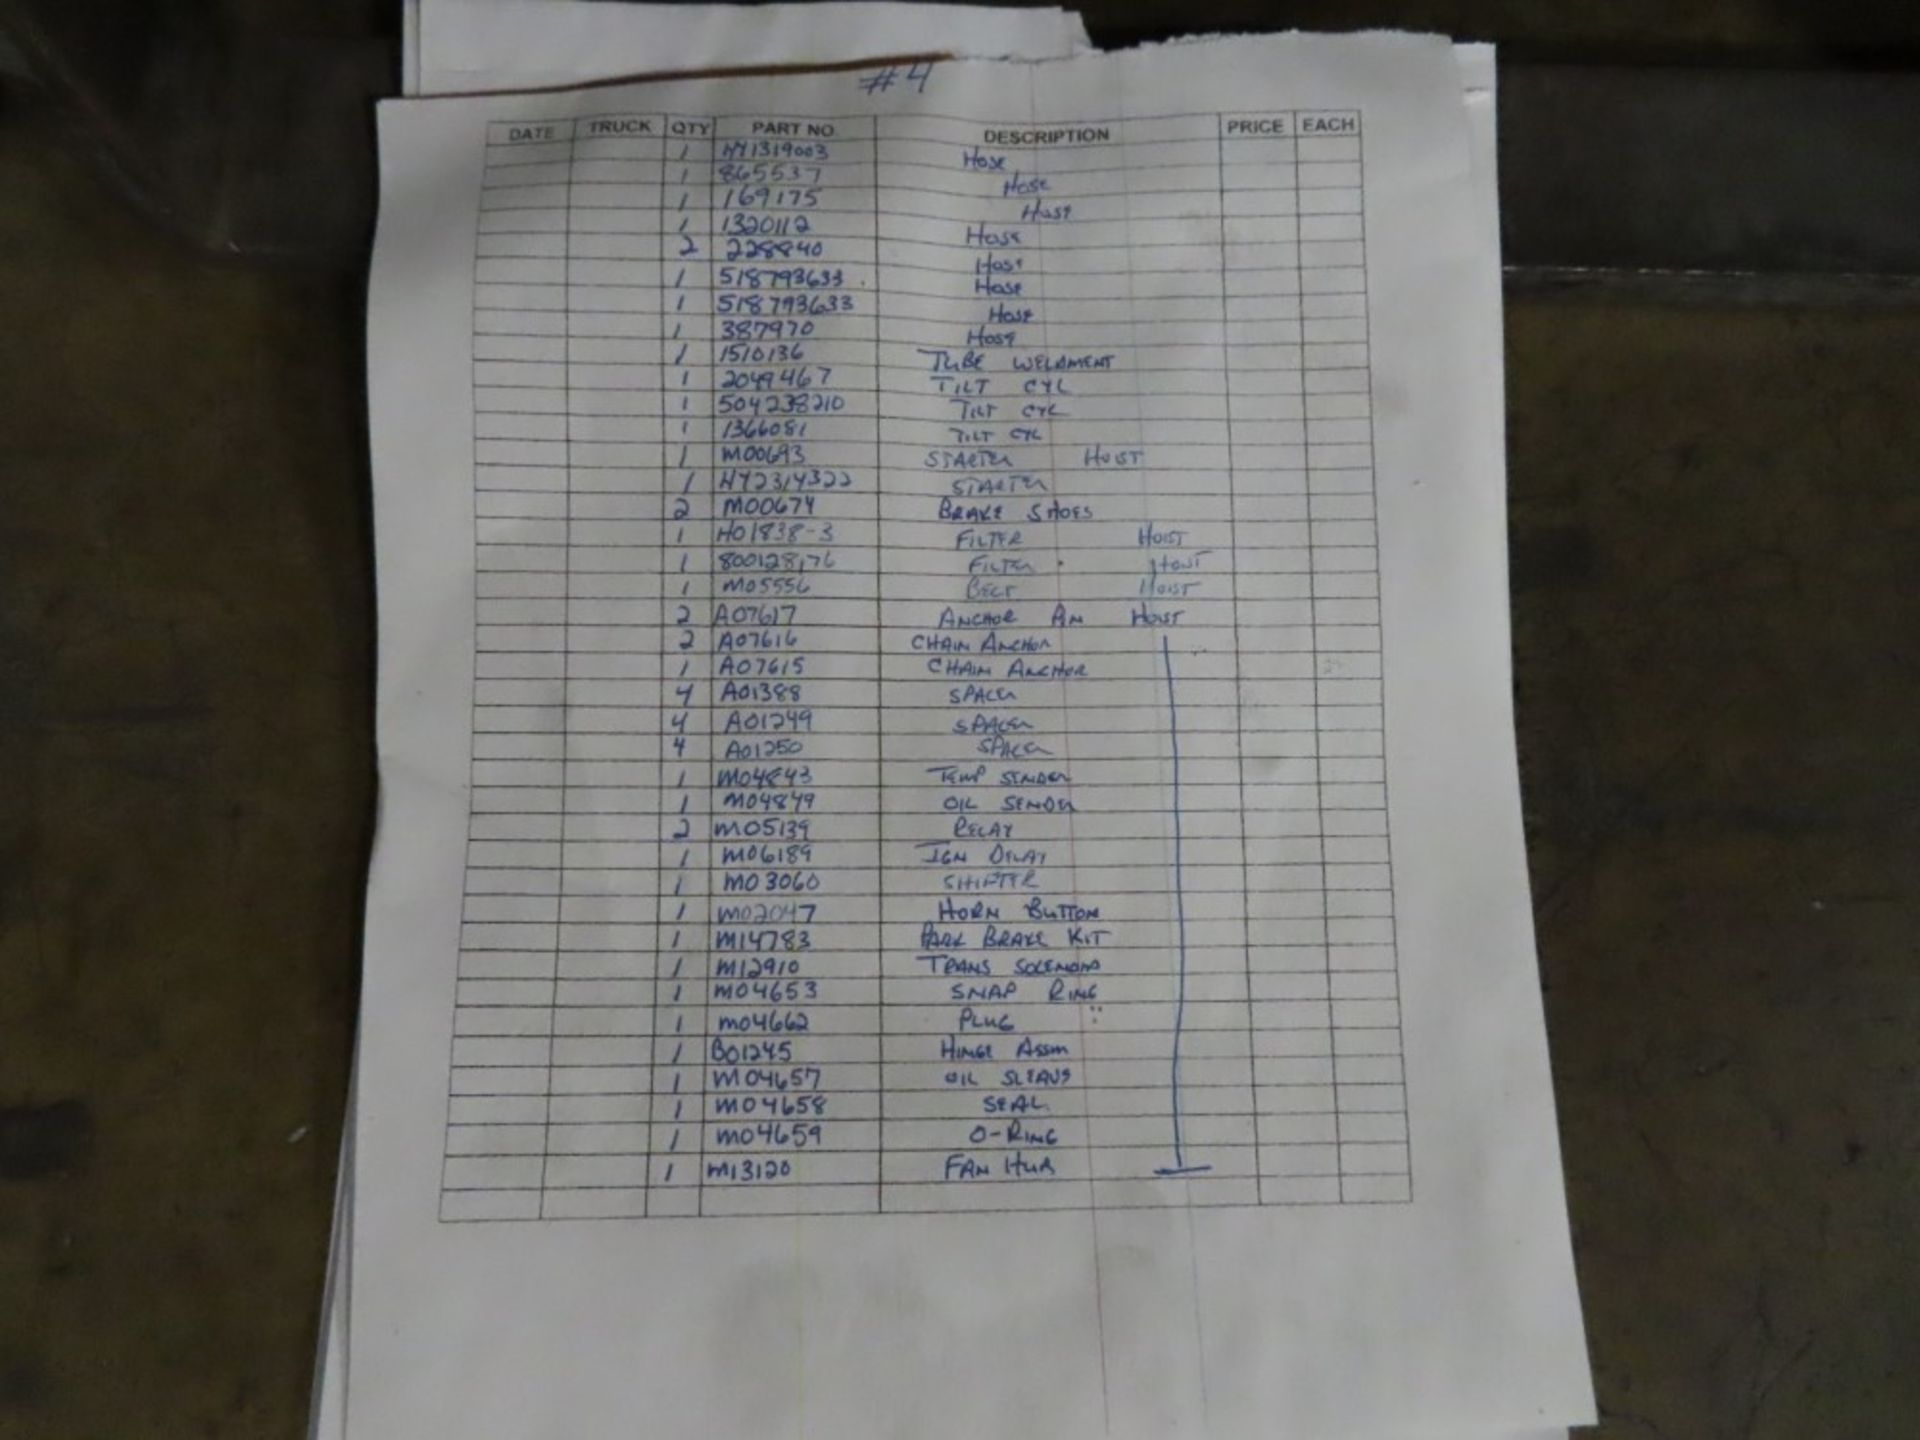 #4
DATE TRUCK QTY PART NO DESCRIPTION PRICE EACH
1 HY1319003 Hose
1 865537 Hose
1 169175 Hose
1 1320112 Hose
2 228840 Hose
1 518793633 Hose
1 518793633 Hose
1 387970 Hose
1 1510136 TUBE WELDMENT
1 2049467 TILT CYL
1 504238210 TILT CYL
1 1366081 TILT CYL
1 M00693 STARTER HOIST
1 HY2314322 STARTER
2 M00674 BRAKE SHOES
1 H01838-3 FILTER HOIST
1 800128176 FILTER HOIST
1 M05556 BELT HOIST
2 A07617 ANCHOR PIN HOIST
2 A07616 CHAIN ANCHOR
1 A07615 CHAIN ANCHOR
4 A01388 SPACER
4 A01249 SPACER
4 A01250 SPACER
1 M04843 TEMP SENDER
1 M04849 OIL SENDER
2 M05139 RELAY
1 M06189 IGN RELAY
1 M03060 SHIFTER
1 M02047 HORN BUTTON
1 M14783 PARK BRAKE KIT
1 M12910 TRANS SOLENOID
1 M04653 SNAP RING
1 M04662 PLUG
1 B01245 HINGE ASSM
1 M04657 OIL SLEAVE
1 M04658 SEAL
1 M04659 O-RING
1 M13120 FAN HUB